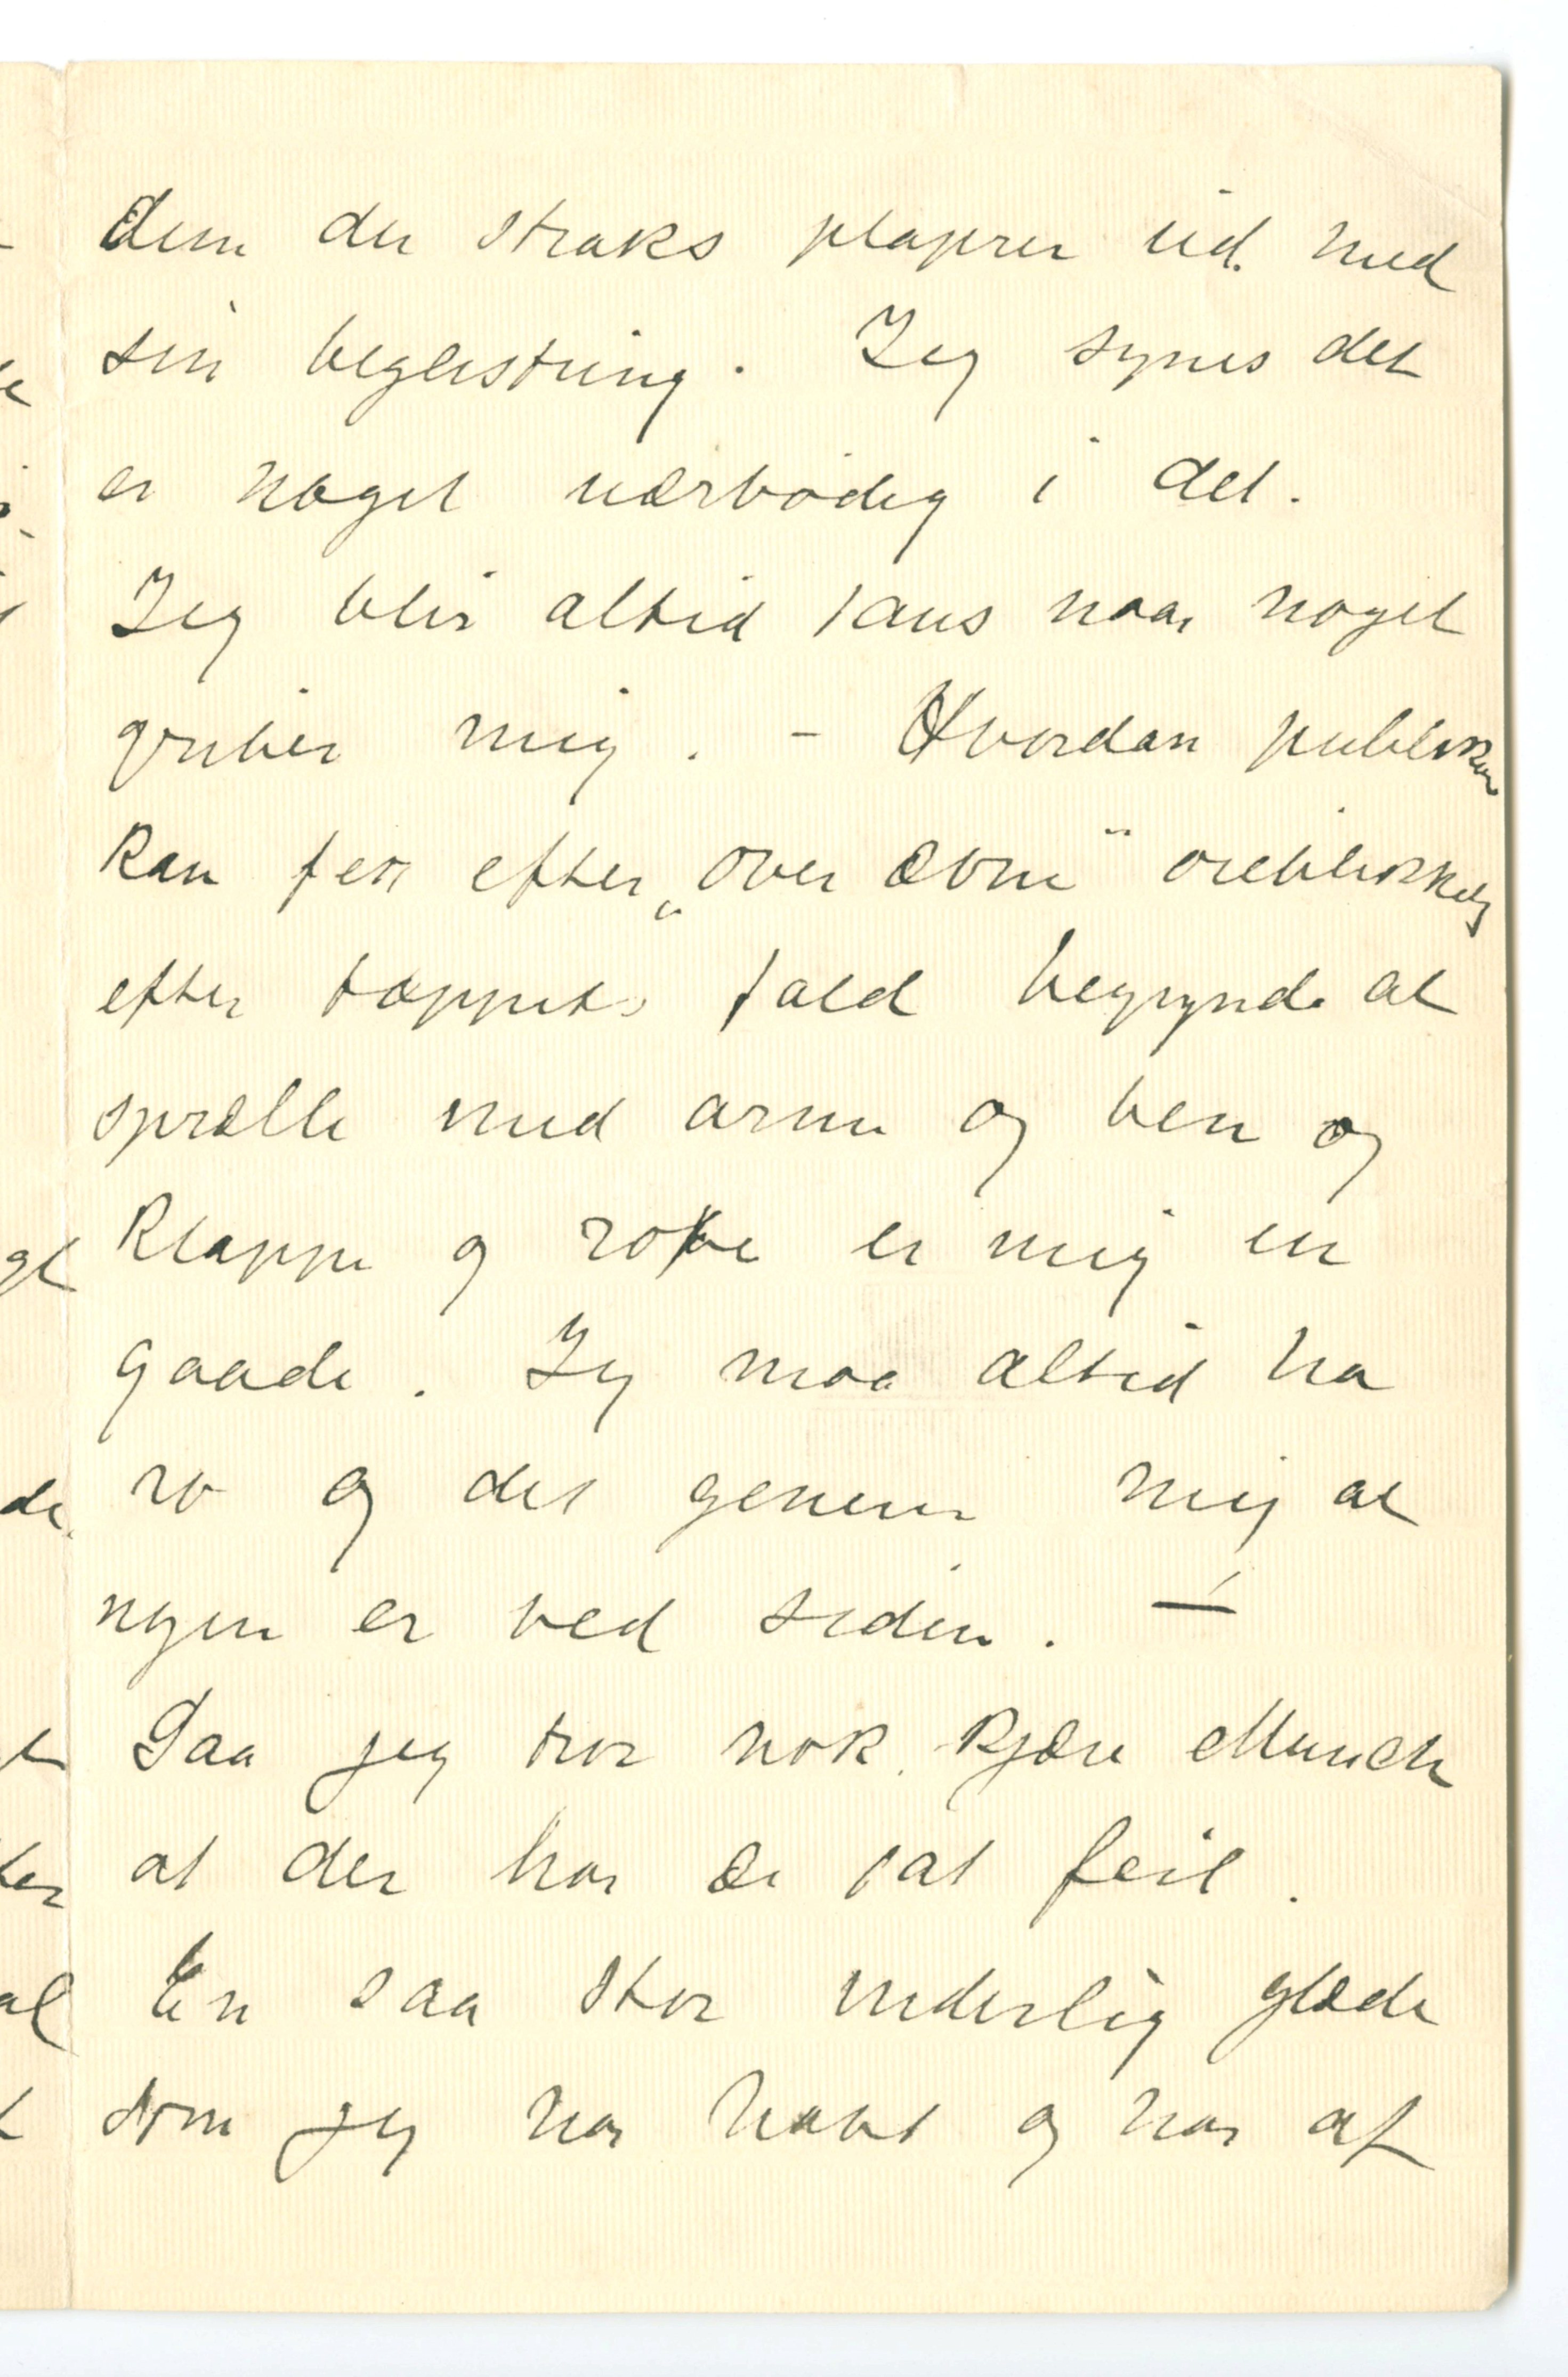 dem der straks plaprer ud med
sin begeistring. Jeg synes det
er noget uærbødig i det.
Jeg blir altid taus naar noget
griber mig. – Hvordan publikum
kan f ex efter „over ævne“ øieblikkelig
efter tæppets fald begynde at
sprælle med arme og ben og
klappe og robe er mig en
gaade. Jeg maa altid ha
ro og det generer mig at
nogen er ved siden. –
Saa jeg tror nok kjære Munch
at der har De tat feil.
En saa stor inderlig glæde
som jeg har havt og har af